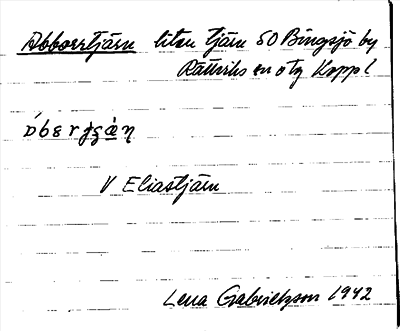 Abborrtjärn liten tjärn SO Bingsjö by
Rättviks sn o tg Koppl
V Eliastjärn
Lena Gabrielsson 1942